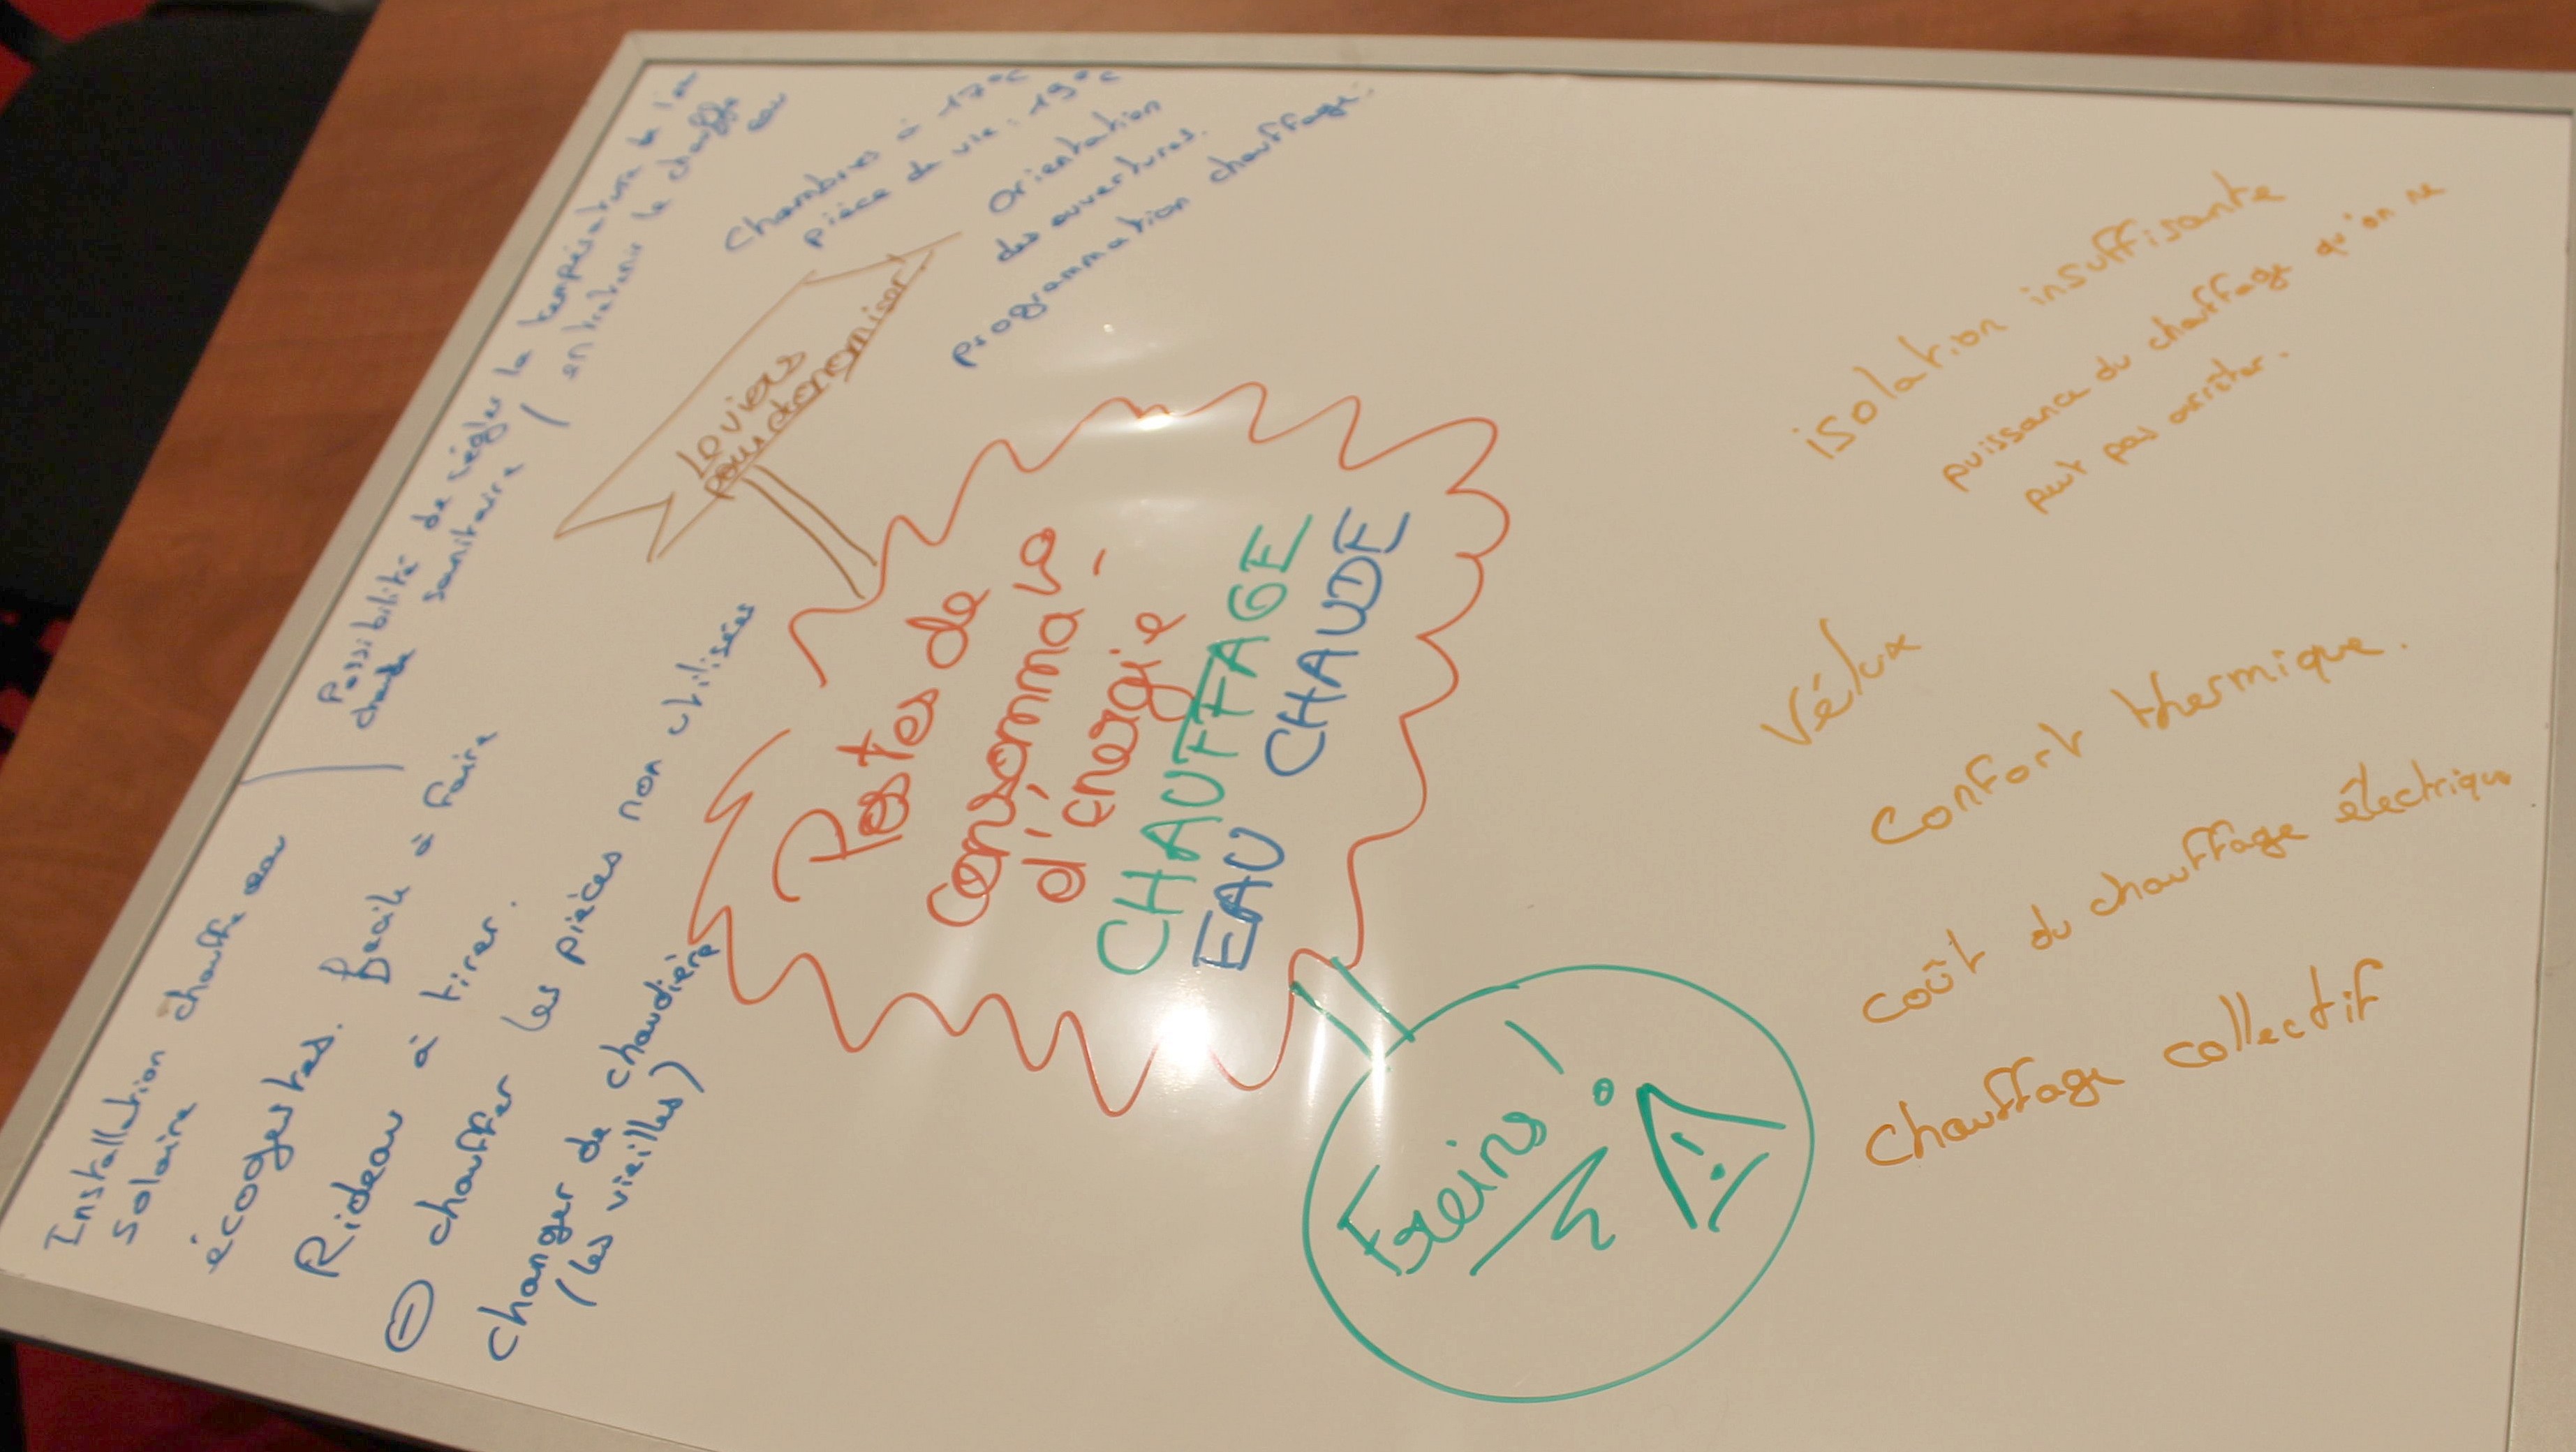 Postes de
consomma°
d'énergie
CHAUFFAGE
EAU CHAUDE
Leviers
pour économiser
Possibilité de régler la température de l'eau
chaude sanitaire / entretenir le chauffe
eau
Chambres à 17°C
pièce de vie : 19°C
Orientation
des ouvertures.
programmation chauffage.
Installation chauffe eau
solaire
écogestes. Facile à faire
Rideau à tirer.
⊖ chauffer les pièces non utilisées
Changer de chaudière
(les vieilles)
Freins !
isolation insuffisante
puissance du chauffage qu'on ne
peut pas arrêter.
Vélux
Confort thermique.
coût du chauffage électrique
Chauffage collectif